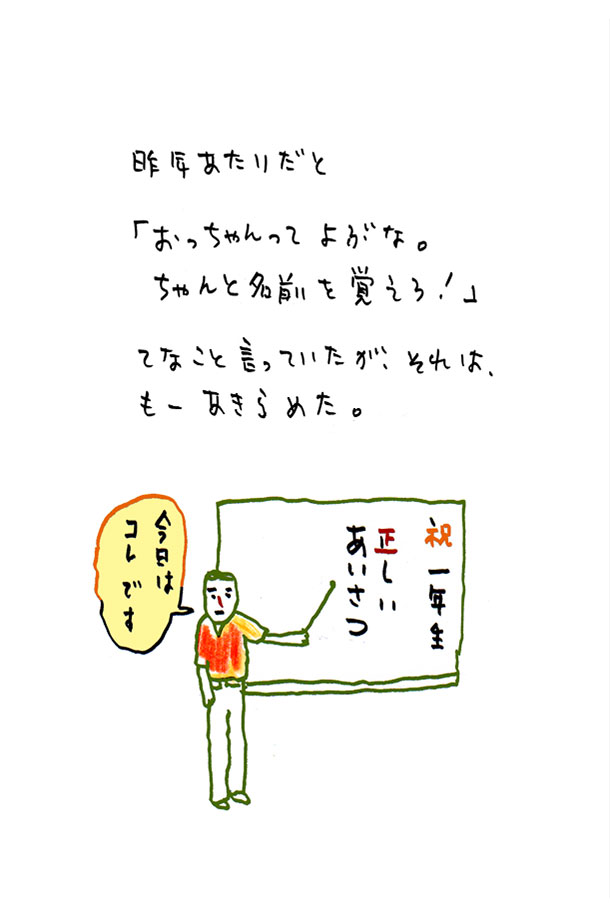 昨年あたりだと
「おっちゃんって よぶな。
ちゃんと名前を覚えろ!」
てなこと言っていたが、それは、
もー あきらめた。
今日は
コレです
祝 一年生
正しい
あいさつ